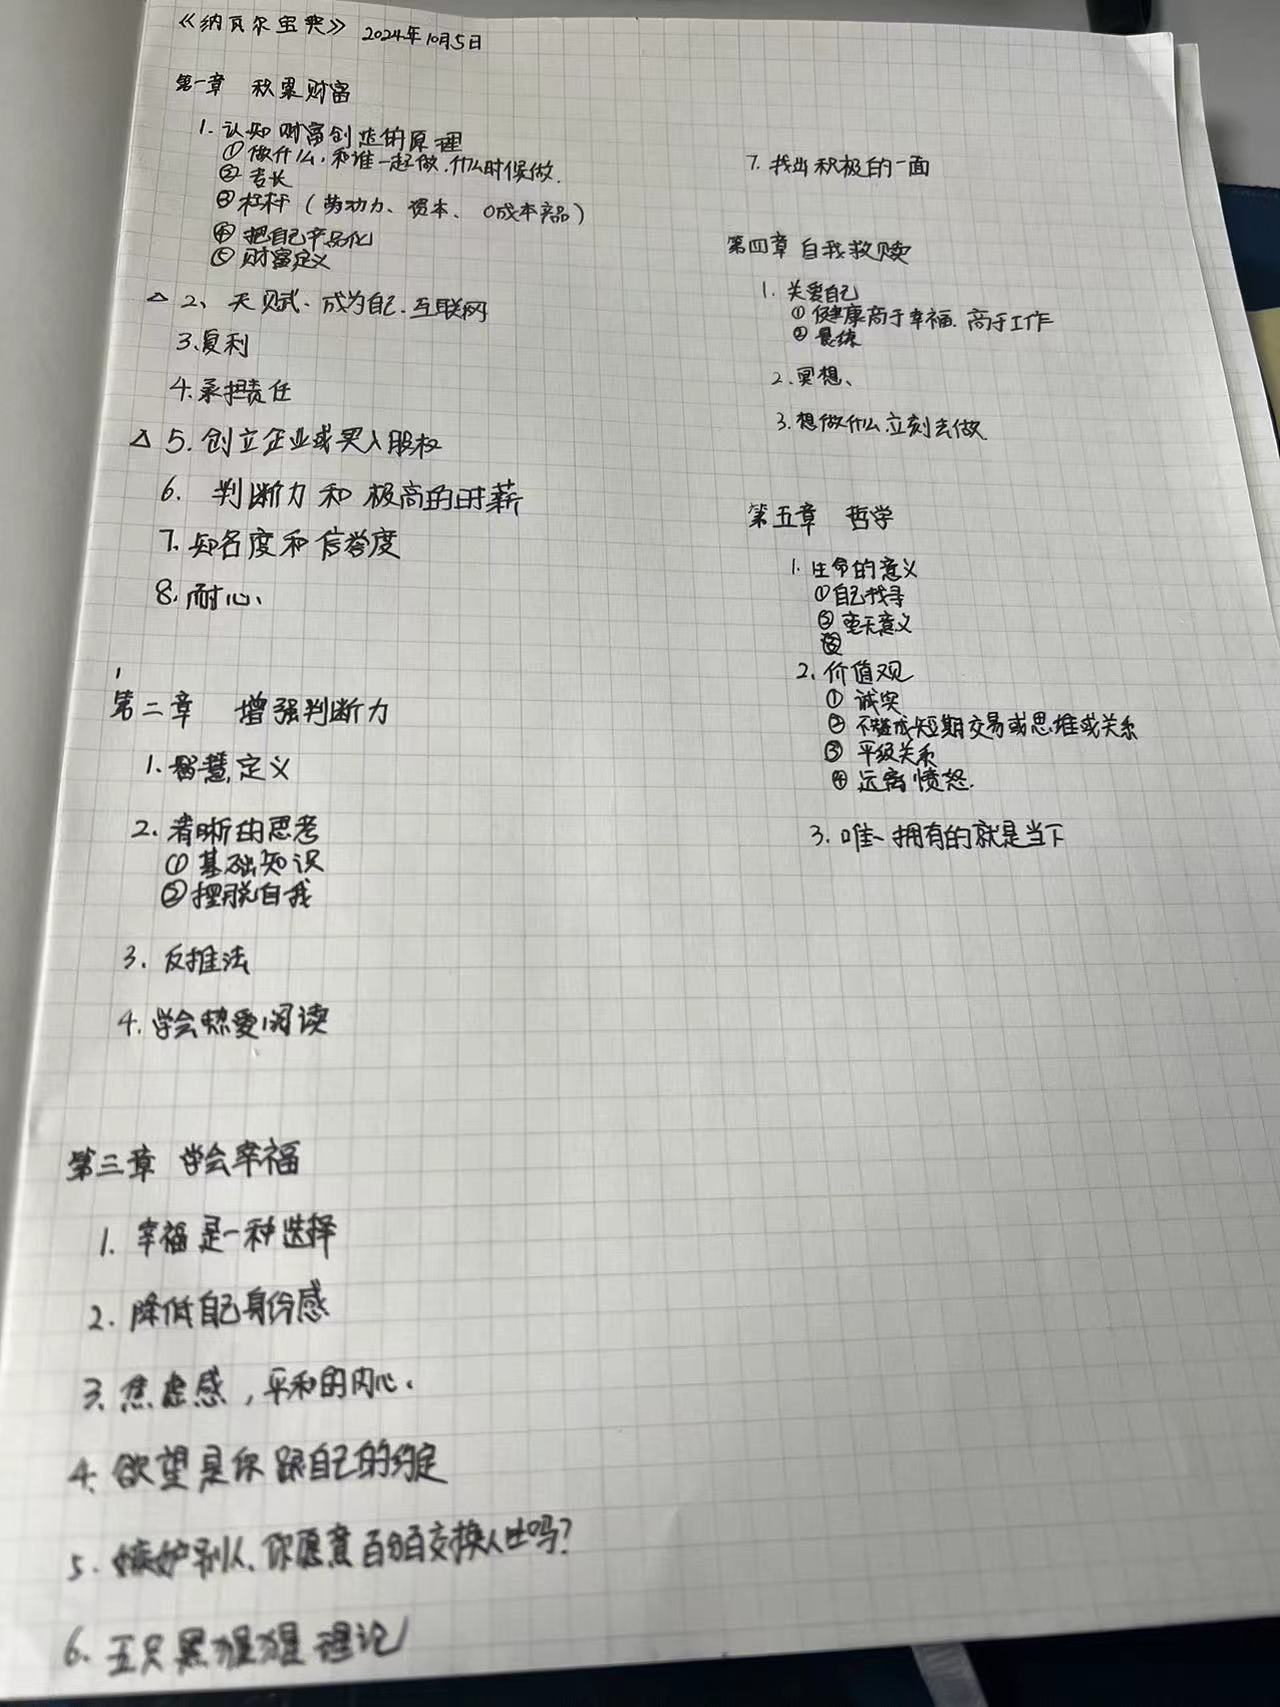 《纳瓦尔宝典》 2024年10月5日
第一章 积累财富
1. 认知财富创造的原理
① 做什么、和谁一起做、什么时候做.
② 专长
③ 杠杆（劳动力、资本、0成本产品）
④ 把自己产品化
⑤ 财富定义
△ 2、天赋、成为自己、互联网
3.复利
4.承担责任
△ 5.创立企业或买入股权
6. 判断力和极高的时薪
7. 知名度和信誉度
8.耐心、
第二章 增强判断力
1.智慧定义
2. 清晰的思考
① 基础知识
② 摆脱自我
3. 反推法
4.学会热爱阅读
第三章 学会幸福
1. 幸福是一种选择
2. 降低自己身份感
3. 焦虑感，平和的内心.
4. 欲望是你跟自己的约定
5. 嫉妒别人、你愿意百分百交换人生吗?
6. 五只黑猩猩理论
7. 找出积极的一面
第四章 自我救赎
1. 关爱自己
① 健康高于幸福、高于工作
②
2.冥想、
3.想做什么立刻去做
第五章 哲学
1. 生命的意义
① 自己找寻
② 毫无意义
2. 价值观
① 诚实
② 不赞成短期交易或思维或关系
③ 平级关系
④ 远离愤怒.
3. 唯一拥有的就是当下